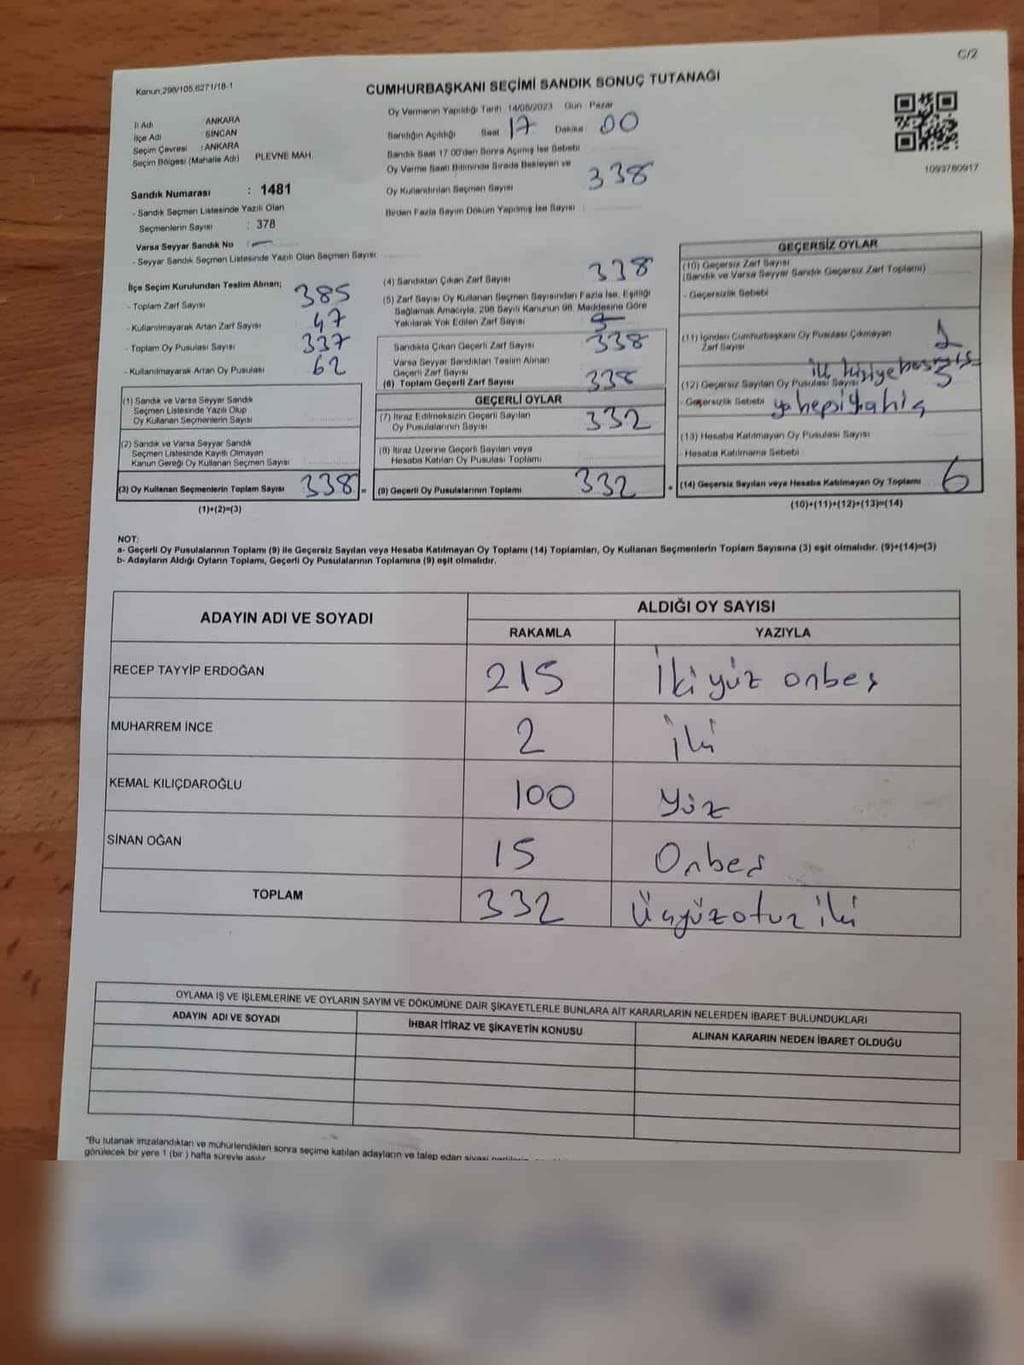 C/2
Kanun:298/105,6271/18-1
CUMHURBAŞKANI SEÇİMİ SANDIK SONUÇ TUTANAĞI
İl Adı ANKARA
İlçe Adı SİNCAN
Seçim Çevresi : ANKARA
Seçim Bölgesi (Mahalle Adı) PLEVNE MAH.
Sandık Numarası : 1481
- Sandık Seçmen Listesinde Yazılı Olan
Seçmenlerin Sayısı : 378
Varsa Seyyar Sandık No : -
- Seyyar Sandık Seçmen Listesinde Yazılı Olan Seçmen Sayısı
Oy Vermenin Yapıldığı Tarih 14/05/2023 Gün Pazar
Sandığın Açıldığı Saat 17 Dakika 00
Sandık Saat 17:00'den Sonra Açılmış İse Sebebi
Oy Verme Saati Bitiminde Sırada Bekleyen ve
Oy Kullandırılan Seçmen Sayısı 338
Birden Fazla Sayım Döküm Yapılmış İse Sayısı
1093780917
İlçe Seçim Kurulundan Teslim Alınan;
- Toplam Zarf Sayısı 385
- Kullanılmayarak Artan Zarf Sayısı 47
- Toplam Oy Pusulası Sayısı 337
- Kullanılmayarak Artan Oy Pusulası 62
(1) Sandık ve Varsa Seyyar Sandık
Seçmen Listesinde Yazılı Olup
Oy Kullanan Seçmenlerin Sayısı
(2) Sandık ve Varsa Seyyar Sandık
Seçmen Listesinde Kayıtlı Olmayan
Kanun Gereği Oy Kullanan Seçmen Sayısı
(3) Oy Kullanan Seçmenlerin Toplam Sayısı 338 =
(1)+(2)=(3)
(4) Sandıktan Çıkan Zarf Sayısı 338
(5) Zarf Sayısı Oy Kullanan Seçmen Sayısından Fazla İse, Eşitliği
Sağlamak Amacıyla, 298 Sayılı Kanunun 98. Maddesine Göre
Yakılarak Yok Edilen Zarf Sayısı
Sandıkta Çıkan Geçerli Zarf Sayısı 338
Varsa Seyyar Sandıktan Teslim Alınan
Geçerli Zarf Sayısı
(6) Toplam Geçerli Zarf Sayısı 338
GEÇERLİ OYLAR
(7) İtiraz Edilmeksizin Geçerli Sayılan
Oy Pusulalarının Sayısı 332
(8) İtiraz Üzerine Geçerli Sayılan veya
Hesaba Katılan Oy Pusulası Toplamı
(9) Geçerli Oy Pusulalarının Toplamı 332 +
GEÇERSİZ OYLAR
(10) Geçersiz Zarf Sayısı
(Sandık ve Varsa Seyyar Sandık Geçersiz Zarf Toplamı)
- Geçersizlik Sebebi
(11) İçinden Cumhurbaşkanı Oy Pusulası Çıkmayan
Zarf Sayısı 1
(12) Geçersiz Sayılan Oy Pusulası Sayısı
- Geçersizlik Sebebi ya hepsi ya hiç
(13) Hesaba Katılmayan Oy Pusulası Sayısı
- Hesaba Katılmama Sebebi
(14) Geçersiz Sayılan veya Hesaba Katılmayan Oy Toplamı 6
(10)+(11)+(12)+(13)=(14)
NOT:
a- Geçerli Oy Pusulalarının Toplamı (9) ile Geçersiz Sayılan veya Hesaba Katılmayan Oy Toplamı (14) Toplamları, Oy Kullanan Seçmenlerin Toplam Sayısına (3) eşit olmalıdır. (9)+(14)=(3)
b- Adayların Aldığı Oyların Toplamı, Geçerli Oy Pusulalarının Toplamına (9) eşit olmalıdır.
ADAYIN ADI VE SOYADI ALDIĞI OY SAYISI
RAKAMLA YAZIYLA
RECEP TAYYİP ERDOĞAN 215 İki yüz onbeş
MUHARREM İNCE 2 İki
KEMAL KILIÇDAROĞLU 100 Yüz
SİNAN OĞAN 15 Onbeş
TOPLAM 332 Üçyüzotuz iki
OYLAMA İŞ VE İŞLEMLERİNE VE OYLARIN SAYIM VE DÖKÜMÜNE DAİR ŞİKAYETLERLE BUNLARA AİT KARARLARIN NELERDEN İBARET BULUNDUKLARI
ADAYIN ADI VE SOYADI İHBAR İTİRAZ VE ŞİKAYETİN KONUSU ALINAN KARARIN NEDEN İBARET OLDUĞU
*Bu tutanak imzalandıktan ve mühürlendikten sonra seçime katılan adayların ve talep eden siyasi
görülecek bir yere 1 (bir) hafta süreyle asılır.